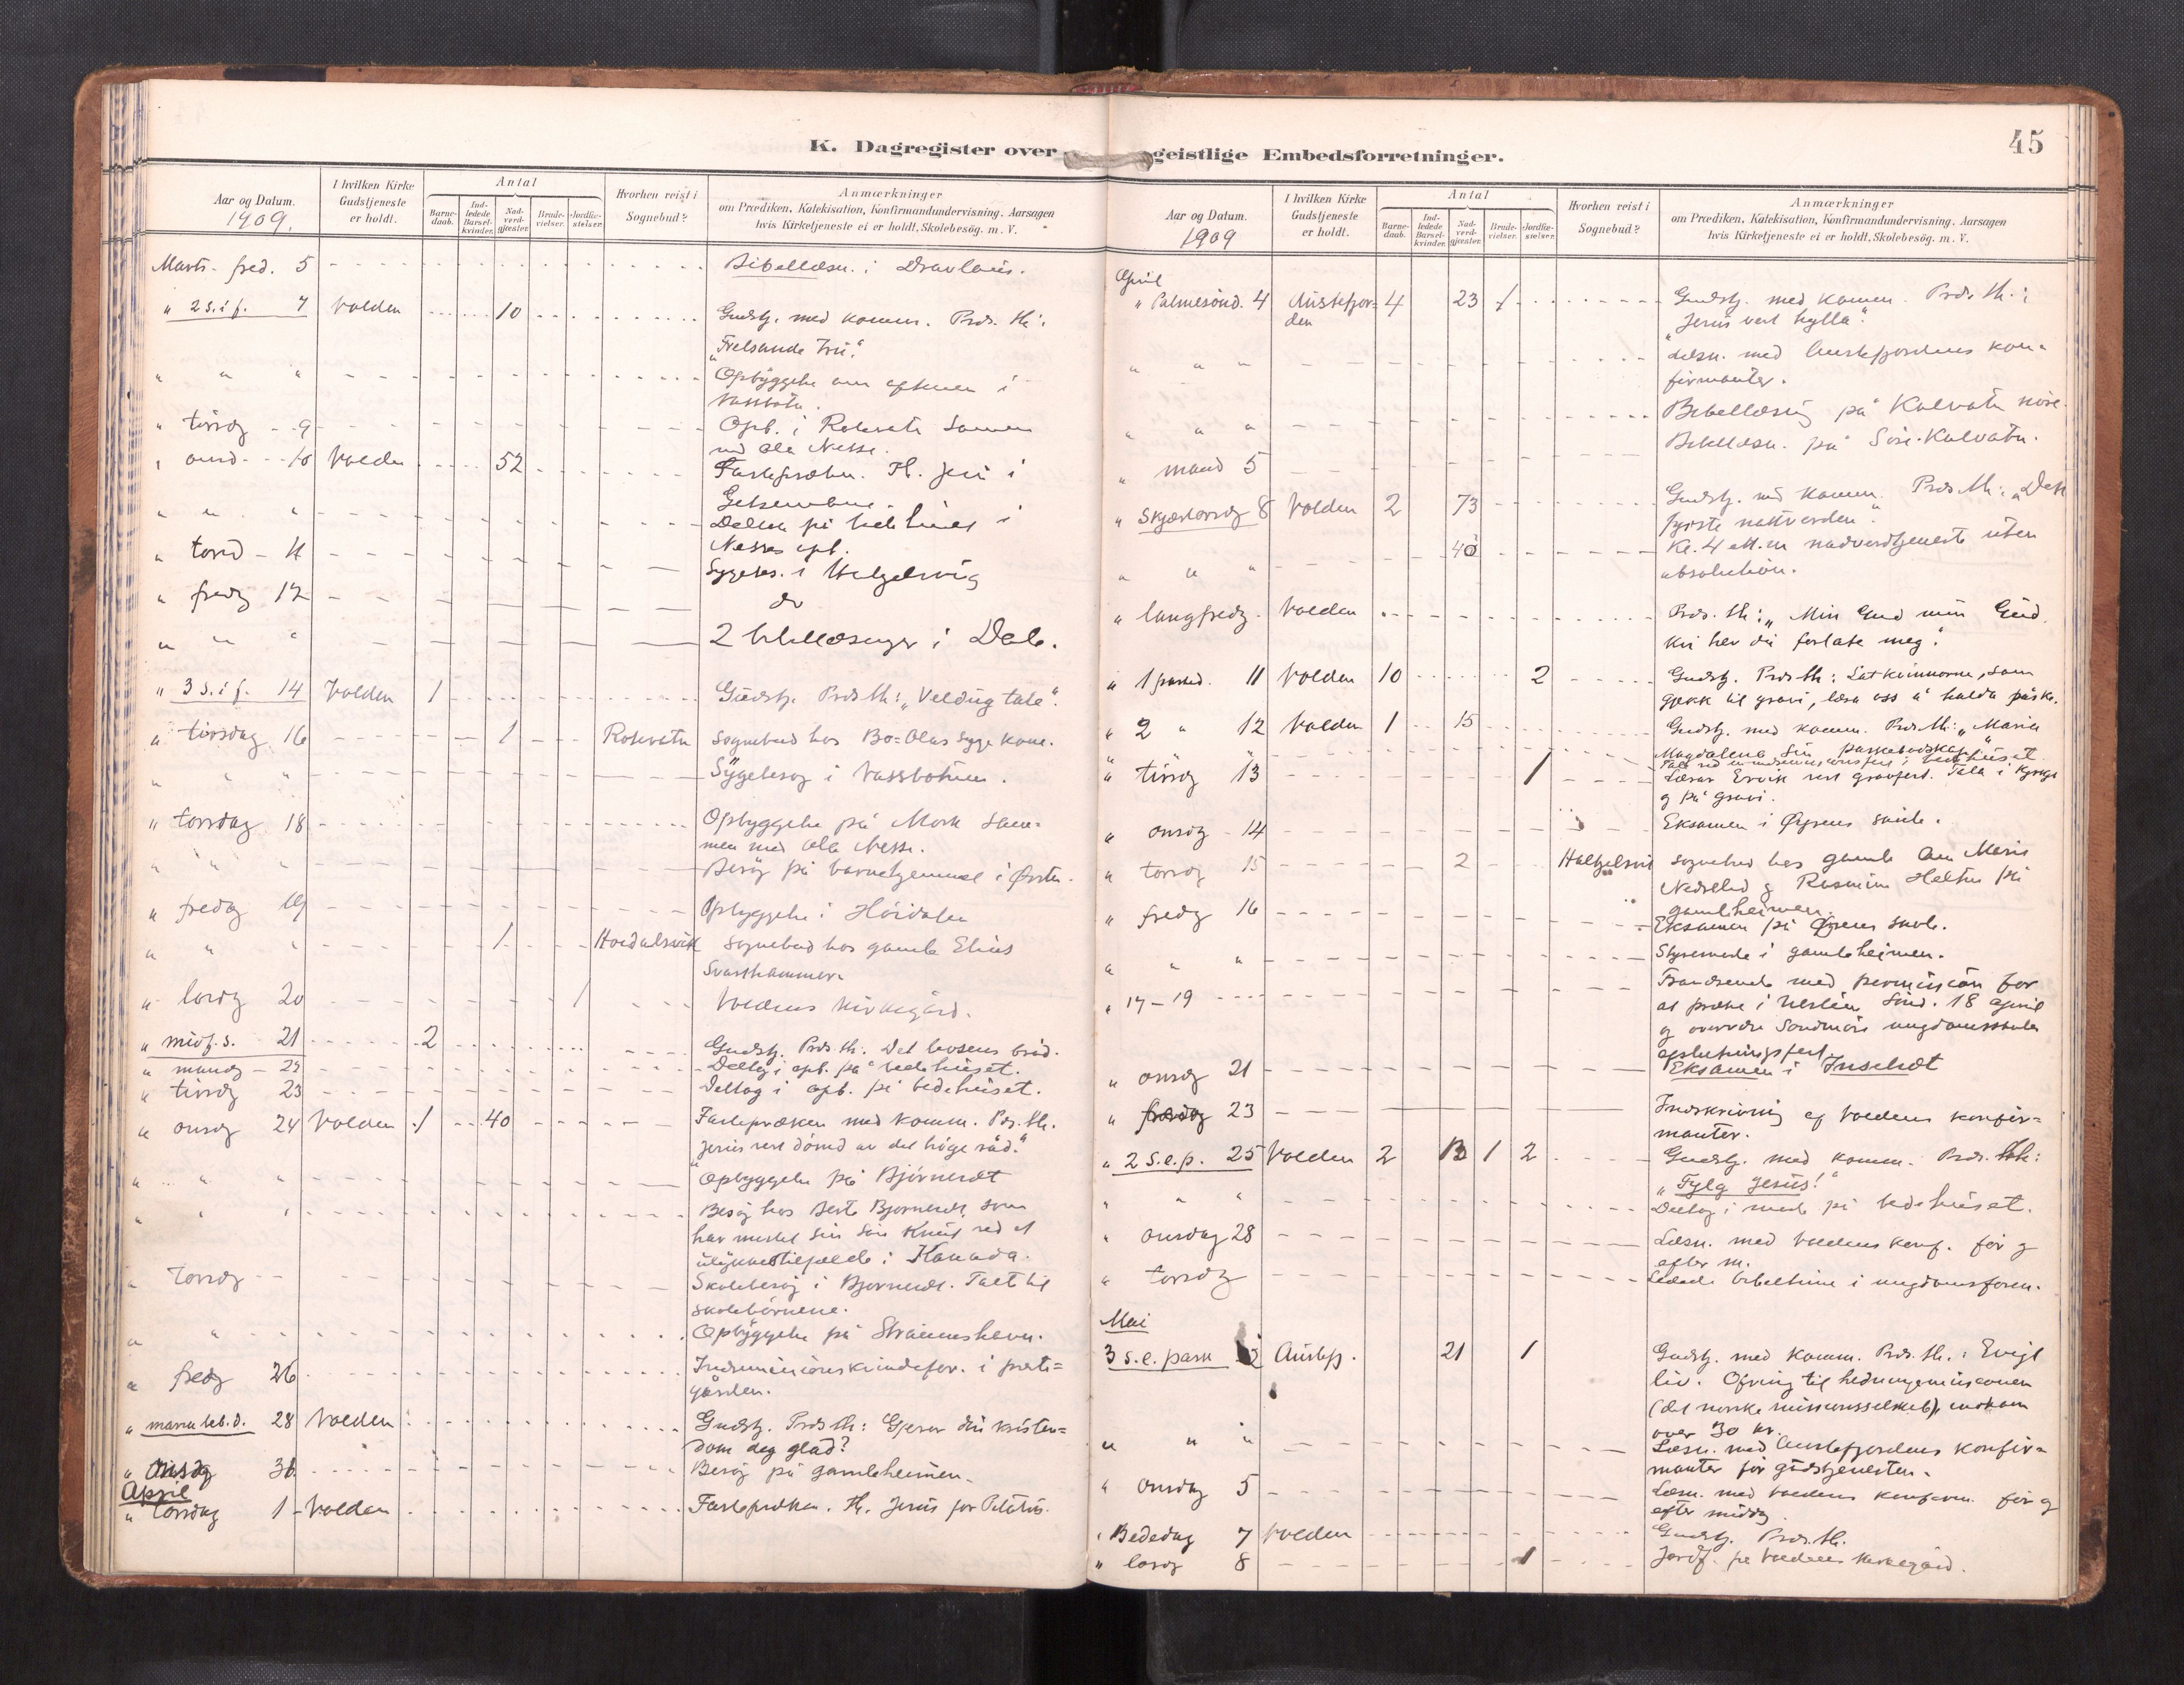 K. Dagregister over geistlige Embedsforretninger.
45
Aar og Datum.
1909.
I hvilken Kirke
Gudstjeneste
er holdt.
Antal
Barne-
daab.
Ind-
ledede
Barsel-
kvinder.
Nad-
verd-
gjæster.
Brude-
vielser.
Jordfæ-
stelser.
Hvorhen reist i
Sognebud?
Anmærkninger
om Prædiken, Katekisation, Konfirmandundervisning, Aarsagen
hvis Kirketjeneste ei er holdt, Skolebesøg. m. V.
Marts. fred. 5 Bibellæsn. i Dravlaus.
" 2 S. i f. 7 Volden 10 Gudstj. med komm. Præs. th:
"Frelsande tru".
" " " Opbyggelse om aftenen i
Vassbotn.
" tirsdg 9 Opb. i Rotevatn sammen
med Ola Nesse.
" onsd. 10 Volden 52 Fasteprædn. Th. Jesu i
Getsemane.
" " " Deltok på bedehuset i
Nesses opb.
" torsd 11 Sygebes. i Helgelsvig
" fredg 12 do
" " " 2 bibellæsninger i Dale.
" 3 S. i f. 14 Volden 1 Gudstj. Præs th: "Veldug tale".
" tirsdag 16 1 Rotevatn Sognebud hos Bø-Olas syge kone.
" " " Sygebesøg i Vassbotnen.
" torsdag 18 Opbyggelse på Mork sam-
men med Ola Nesse.
" " " Besøg på barnehjemmet i Ørsta.
" fredag 19 Opbyggelse i Høidalen
" " " 1 Hoidalsvik Sognebud hos gamle Elias
Svarthammer
" lørdg 20 1 Voldens kirkegård.
" midf. s. 21 2 Gudstj. Præs. th. Det livsens brød.
" mandg 22 Deltog i opb. på bedehuset.
" tirsdg 23 Deltog i opb. på bedehuset.
" onsdg 24 Volden 1 40 Fasteprædken med komm. Præs. th.
"Jesus vert dømd av det høge råd."
" " " Opbyggelse på Bjørneset
" " " Besøg hos Berte Bjørneset som
har mistet sin søn Knut ved et
ulykkestilfælde i Kanada.
" Torsdg Skolebesøg i Bjørneset. Talt til
skolebørnene.
" " Opbyggelse på Straumshavn.
" fredg 26 Indremissionskvindefor. i præste-
gården.
" maria beb. d. 28 Volden Gudstj. Præs th: Gjerer din kristen-
dom deg glad?
" Onsdg 31 Besøg på gamleheimen.
April
" torsdag 1 Volden Fasteprædken. th. Jesus for Pilatus.
Aar og Datum.
1909
I hvilken Kirke
Gudstjeneste
er holdt.
Antal
Barne-
daab.
Ind-
ledede
Barsel-
kvinder.
Nad-
verd-
gjæster.
Brude-
vielser.
Jordfæ-
stelser.
Hvorhen reist i
Sognebud?
Anmærkninger
om Prædiken, Katekisation, Konfirmandundervisning, Aarsagen
hvis Kirketjeneste ei er holdt, Skolebesøg. m. V.
April
" Palmesønd. 4 Austefjor-
den 4 23 1 Gudstj. med komm. Præs. th.:
"Jesus vert hylla".
" " " Læsn. med Austefjordens kon-
firmanter.
" " " Bibellæsning på Kalvatn nore.
" mand 5 Bibellæsn. på Søre-Kalvatn.
" Skjærtorsdg 8 Volden 2 73 Gudstj. med komm. Præs th: "Det
fyrste nattverden".
" " " 40 Kl. 4 ett. m nadverdtjeneste uten
absolution.
" langfredg. Volden Præs. th: "Min Gud min Gud
kvi hev du forlate meg".
" 1 påsked. 11 Volden 10 2 Gudstj. Præs th: Lat kvinnorne, som
gjekk til gravi, læra oss å halda påske.
" 2 " 12 Volden 1 15 Gudstj. med komm. Præs. th: "Maria
Magdalena sin paskebodskap"
" tirsdg 13 1 Lærar Ervik vert gravfest. Tala i kyrkja
og på gravi.
" onsdg 14 Eksamen i Øyrens skule.
" torsdg 15 2 Halkjelsvik Sognebud hos gamle Ane Marie
Nedrelid og Rasmine Helsæ på
gamleheimen.
" fredg 16 Eksamen på Øyrens skole.
" " " Styremøde i gamleheimen.
" 17-19 Fraværende med permission for
at præke i Ulstein Sønd. 18 April
og overvære Søndmøre ungdomsskules
afslutningsfest
" onsdg 21 Eksamen i Inselset
" fredag 23 Indskrivning af Voldens konfir-
manter.
" 2 S. e. p. 25 Volden 2 13 1 2 Gudstj. med komm. Præs. th:
"Fylg Jesus!"
" " " Deltog i møde på bedehuset.
" onsdag 28 Læsn. med Voldens konf. før og
efter m.
" torsdg Ledede bibeltime i ungdomsforen.
Mai
3 s. e. pask 2 Austefj. 21 1 Gudstj. med komm. Præs. th.: Evigt
liv. Ofring til hedningemissionen
(det norske missionsselskab), indkom
over 30 kr.
" " " Læsn. med Austefjordens konfir-
manter før gudstjenesten.
" onsdg 5 Læsn. med Voldens konfirm. før og
efter middg.
" Bededag 7 Volden Gudstj. Præs. th.
" lørdg 8 1 Jordf. på Voldens kirkegård.